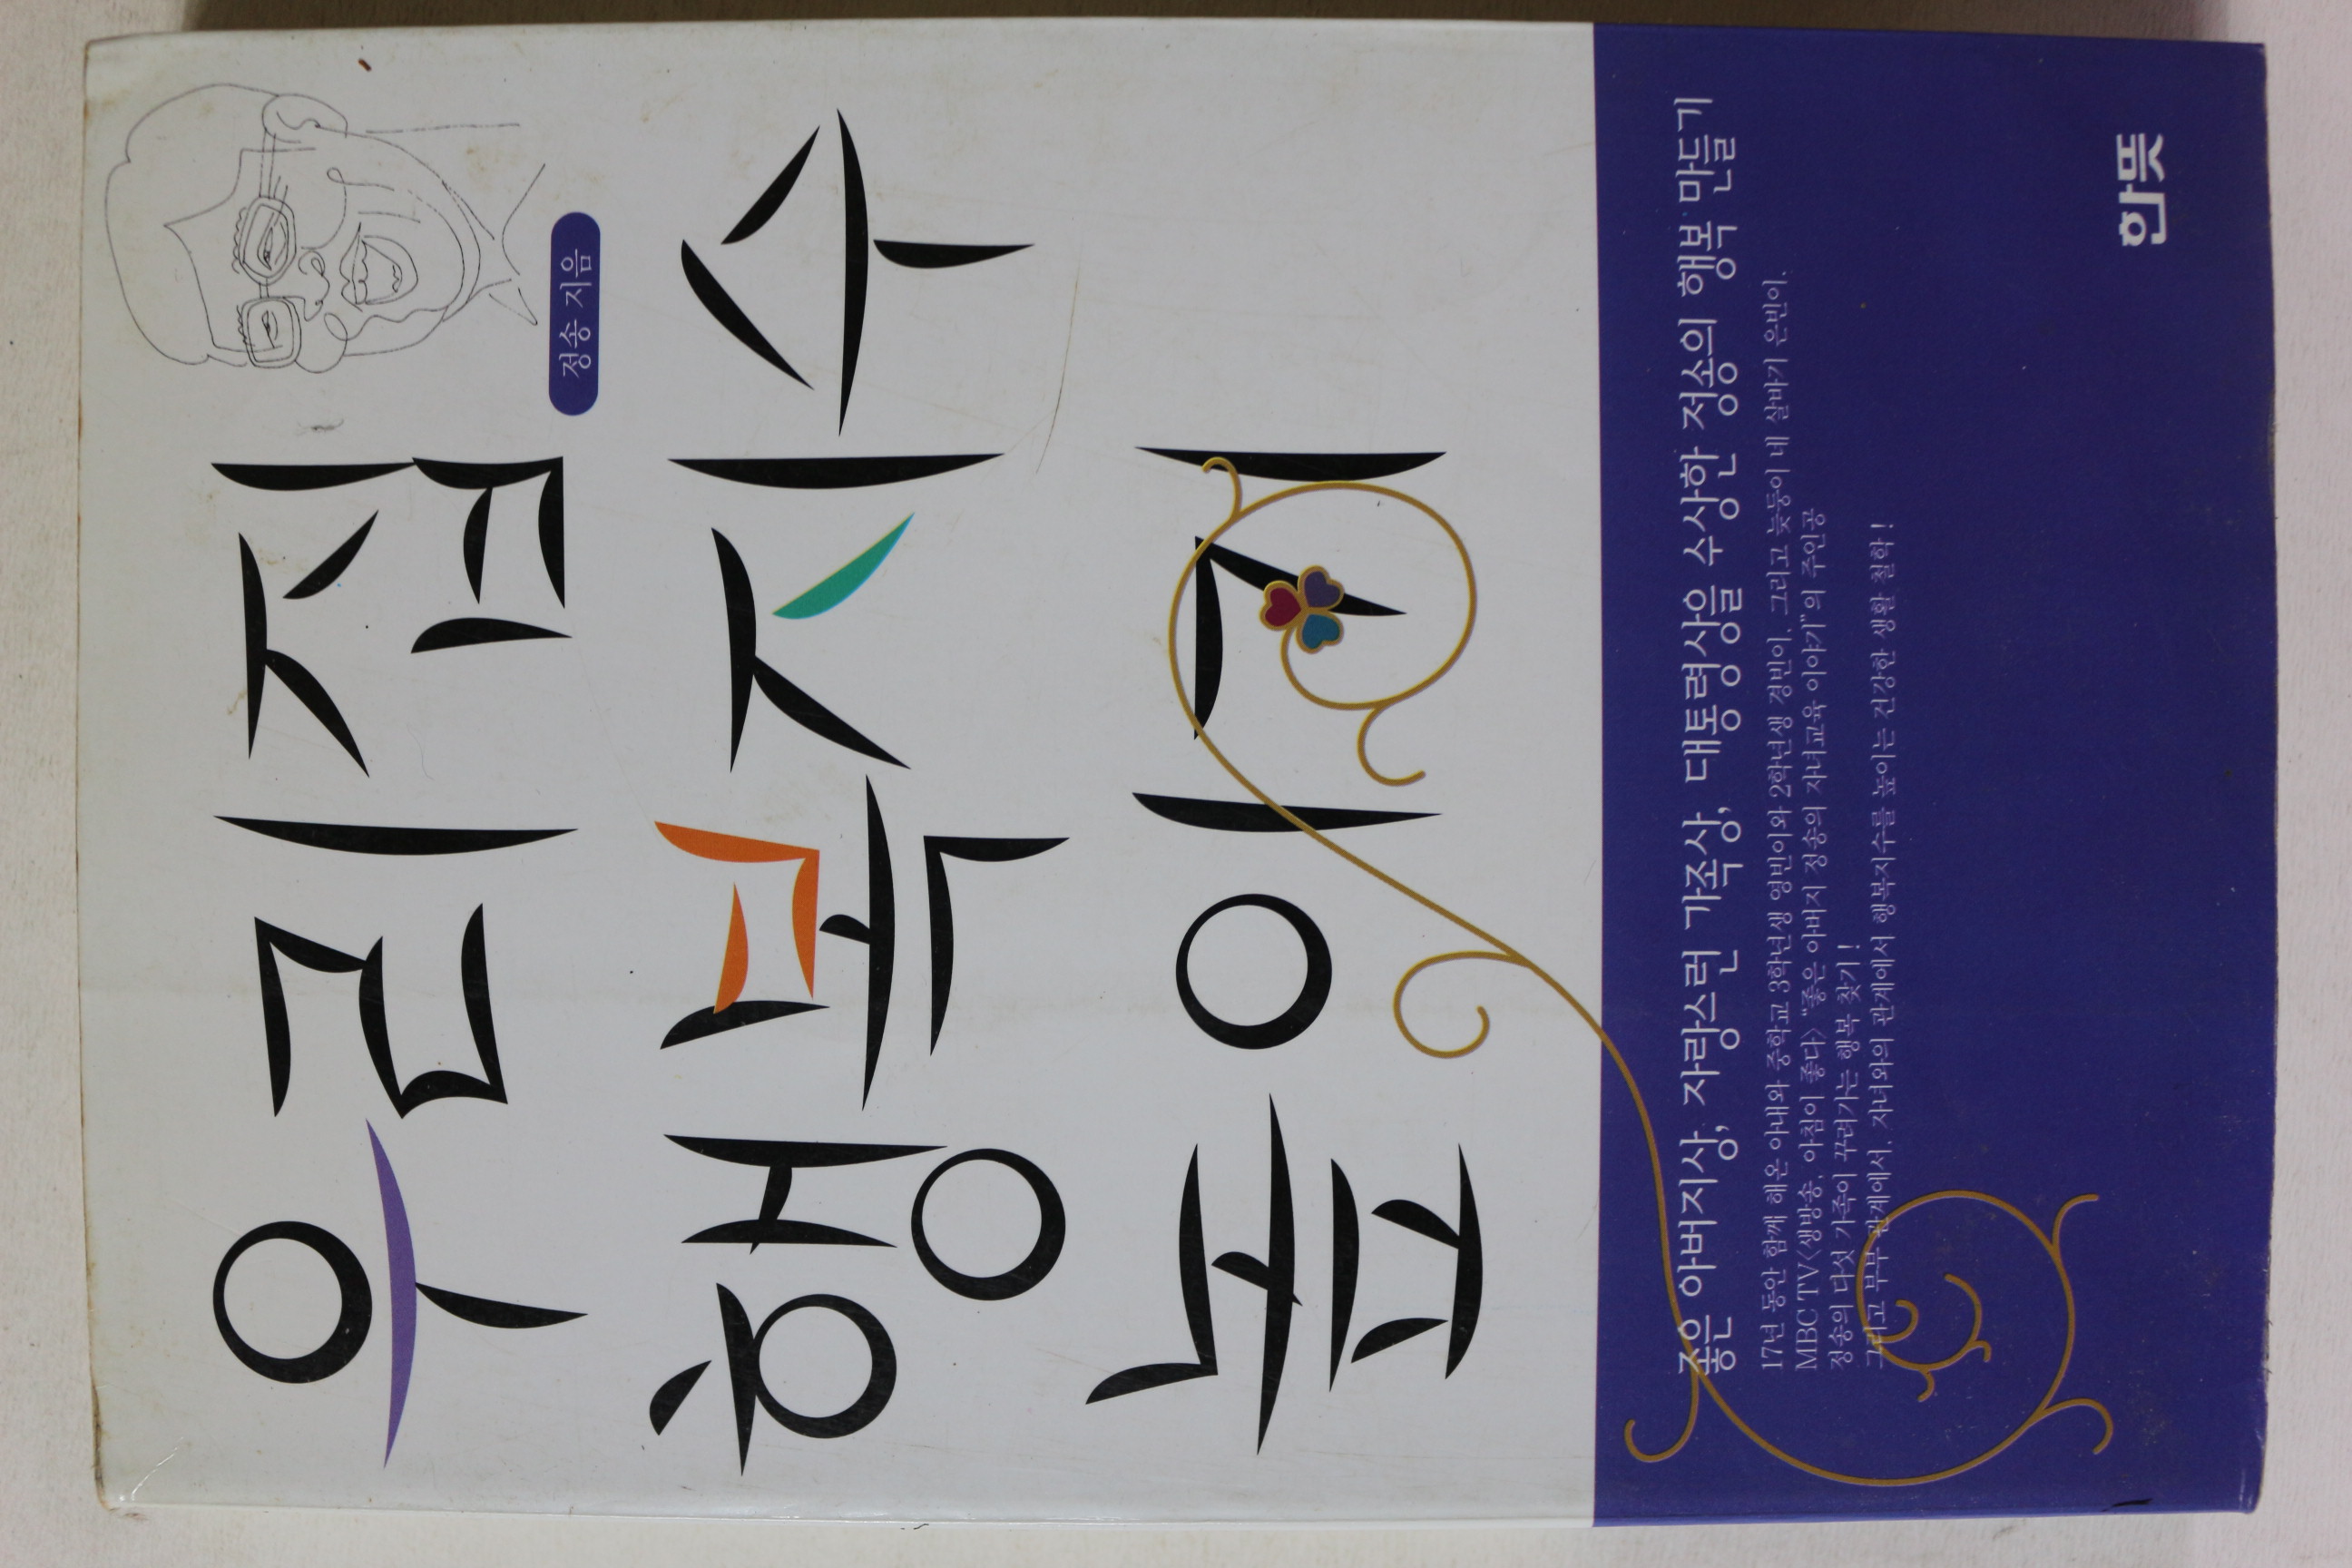 우리집
행복지수
높이기
정송 지음
좋은 아버지상, 자랑스런 가족상, 대통령상을 수상한 정송의 행복 만들기
17년 동안 함께 해온 아내와 중학교 3학년생 영빈이와 2학년생 경빈이, 그리고 늦둥이 네 살배기 은빈이.
MBC TV<생방송, 아침이 좋다> “좋은 아버지 정송의 자녀교육 이야기”의 주인공
정송의 다섯 가족이 꾸려가는 행복 찾기!
그리고 부부 관계에서, 자녀와의 관계에서 행복지수를 높이는 건강한 생활 철학!
한뜻